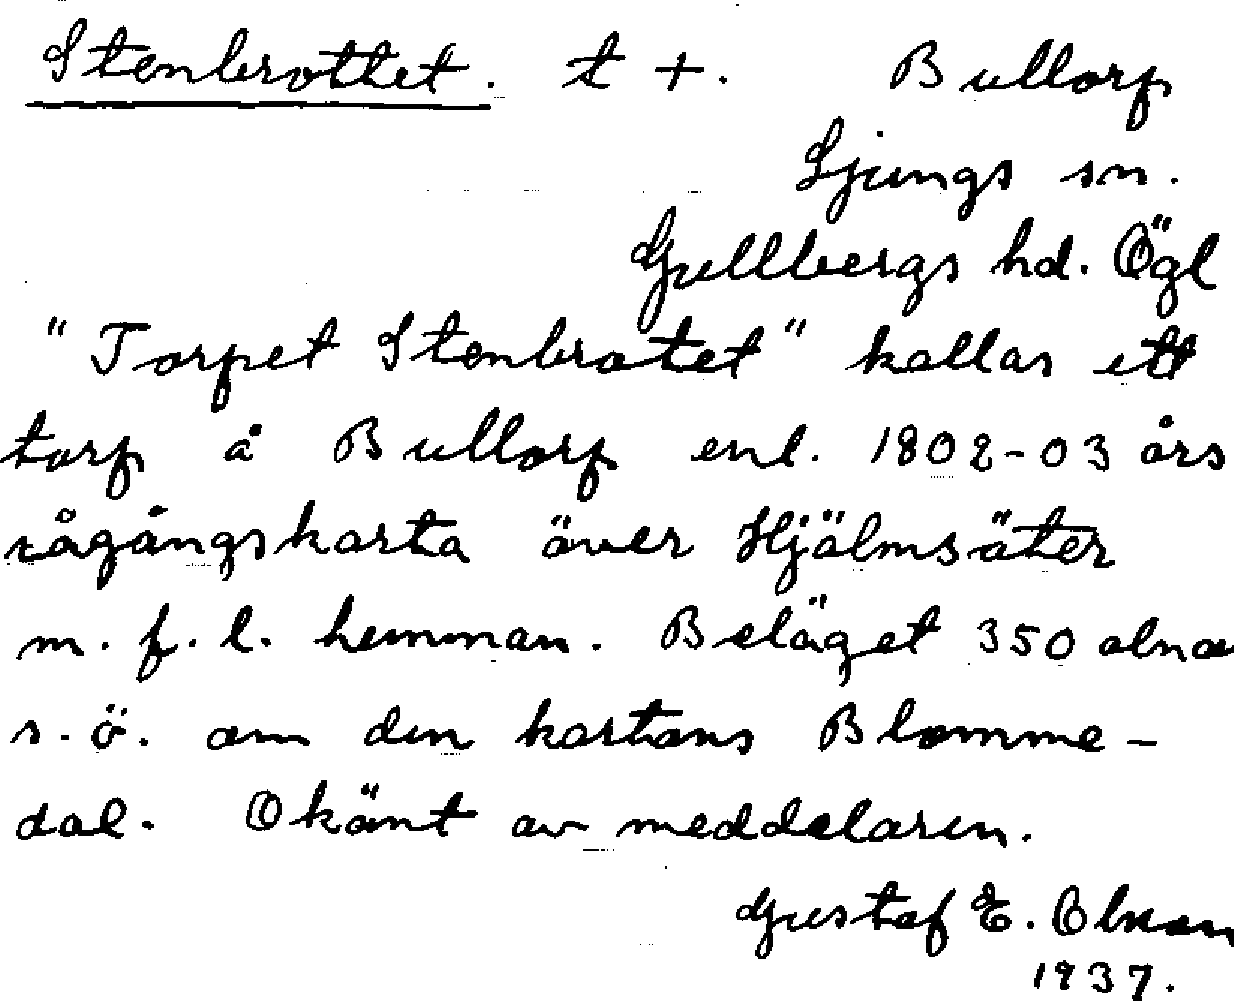 Stenbrottet. t +. Bullorp
Ljungs sn.
Gullbergs hd. Ögl
"Torpet Stenbrotet" kallas ett
torp å Bullorp enl. 1802-03 års
rågångskarta över Hjälmsäter
m. f. l. hemman. Beläget 350 alnar
s. ö. om den kartans Blomme-
dal. Okänt av meddelaren.
Gustaf E.
1937.